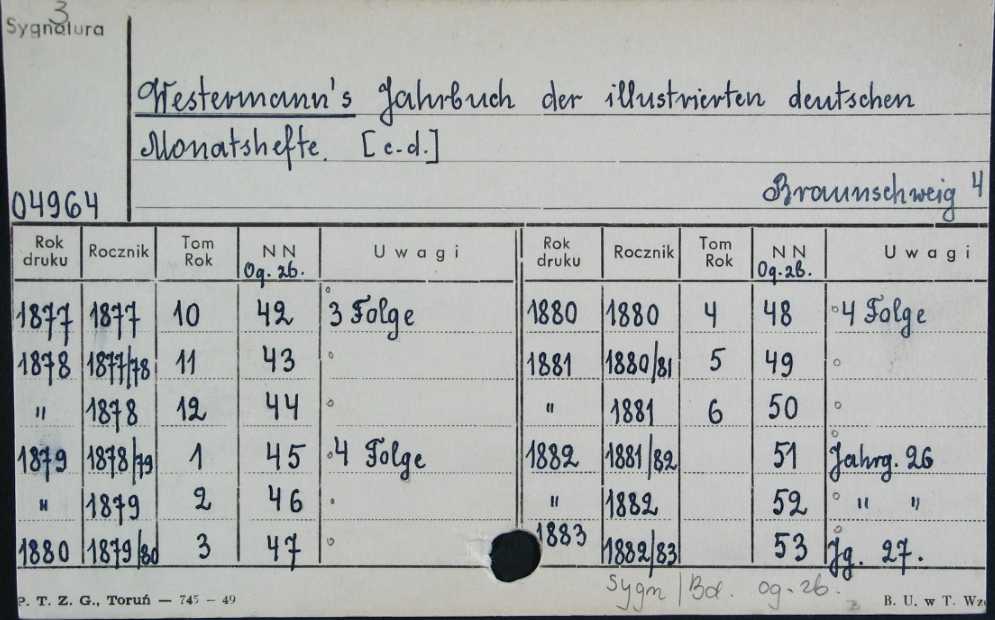 3
Sygnatura
Westermann's Jahrbuch der illustrierten deutschen
Monatshefte. [c.d.]
04964
Braunschweig 4
Rok druku Rocznik Tom Rok NN Og.zb. Uwagi Rok druku Rocznik Tom Rok NN Og.zb. Uwagi
1877 1877 10 42 3 Folge 1880 1880 4 48 4 Folge
1878 1877/78 11 43 1881 1880/81 5 49
" 1878 12 44 " 1881 6 50
1879 1878/79 1 45 4 Folge 1882 1881/82 51 Jahrg. 26
" 1879 2 46 " 1882 52 " "
1880 1879/80 3 47 1883 1882/83 53 Jg. 27.
Sygn/Bd. og.zb.
P. T. Z. G., Toruń — 745 – 49 B. U. w T.